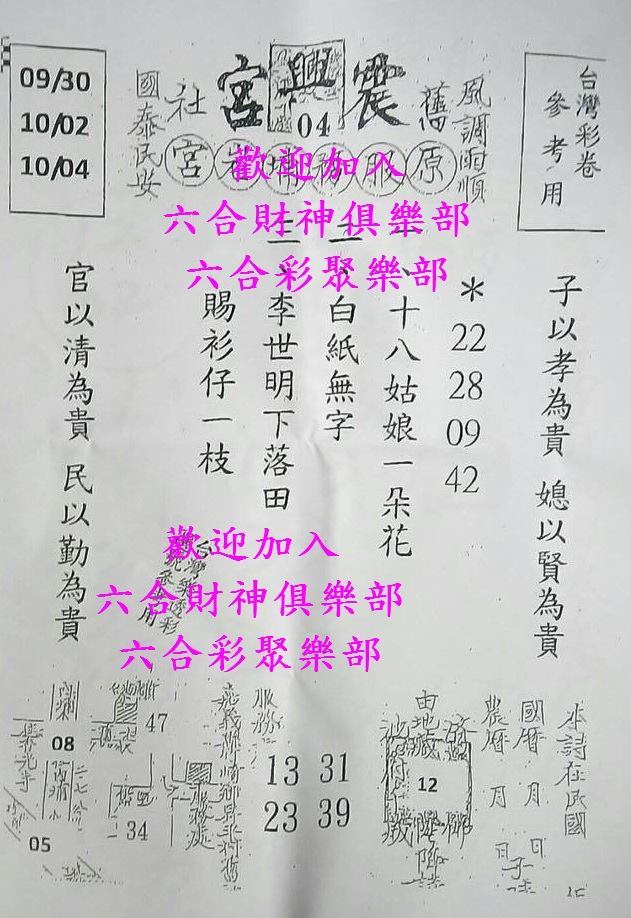 台灣彩卷
參考用
風調雨順
舊
震興宮
04
社
國泰民安
原服務
宮
09/30
10/02
10/04
歡迎加入
六合財神俱樂部
六合彩聚樂部
子以孝為貴 媳以賢為貴
＊22 28 09 42
一、十八姑娘一朵花
二、白紙無字
三、李世明下落田
賜衫仔一枝
官以清為貴 民以勤為貴
歡迎加入
六合財神俱樂部
六合彩聚樂部
本詩在民國
國曆 月 日
農曆 月 日
12
服務
13 31
23 39
47
34
08
05